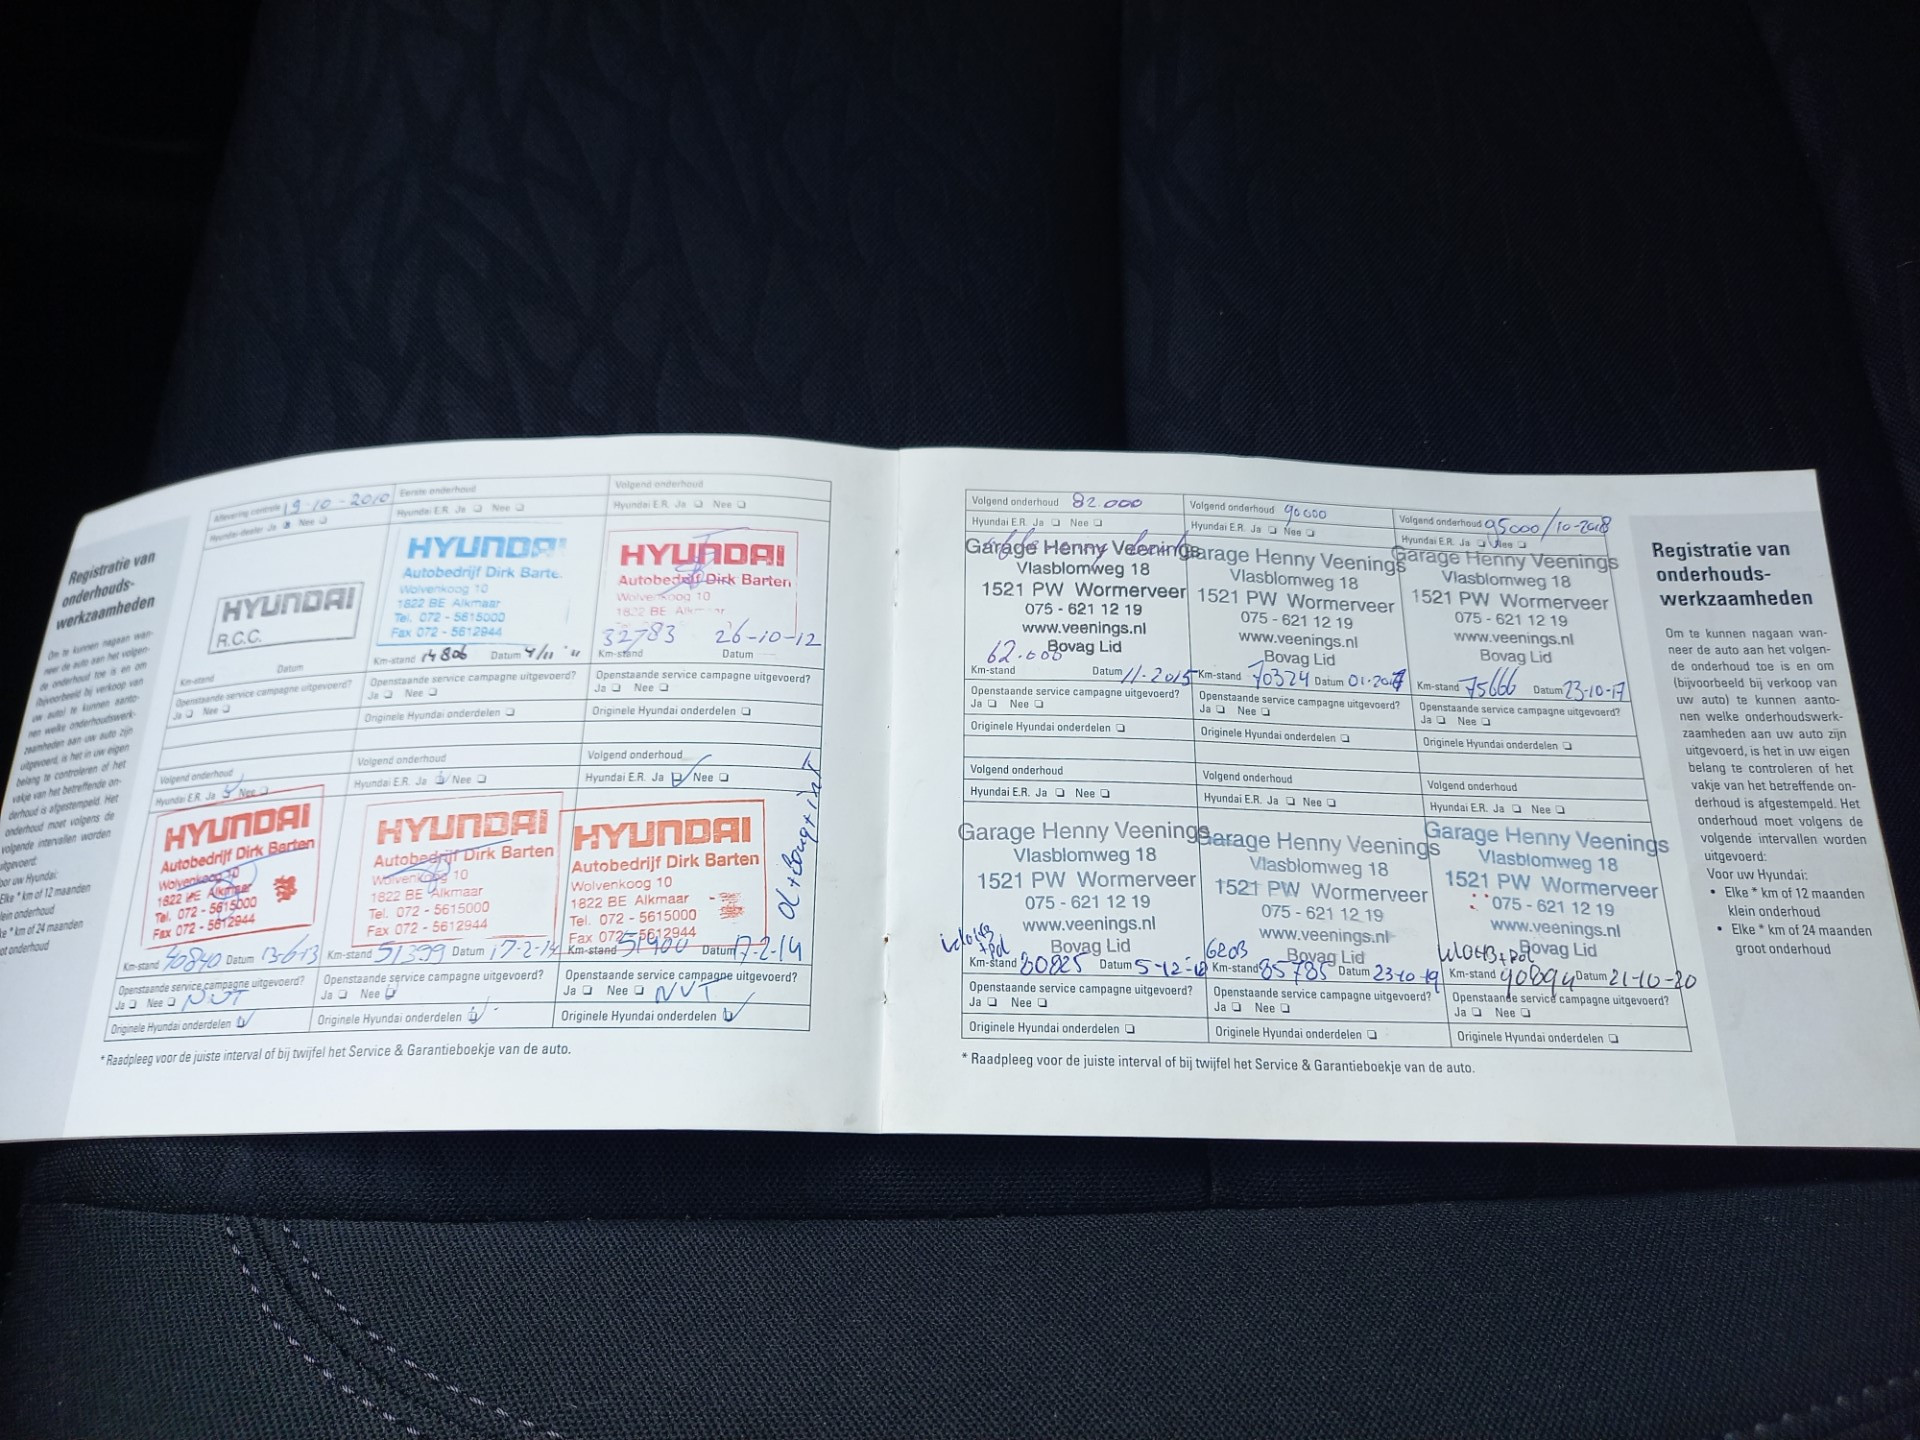 Registratie van
onderhouds-
werkzaamheden
Om te kunnen nagaan wan-
neer de auto aan het volgen-
de onderhoud toe is en om
(bijvoorbeeld bij verkoop van
uw auto) te kunnen aanto-
nen welke onderhoudswerk-
zaamheden aan uw auto zijn
uitgevoerd, is het in uw eigen
belang te controleren of het
vakje van het betreffende on-
derhoud is afgestempeld. Het
onderhoud moet volgens de
volgende intervallen worden
uitgevoerd:
oor uw Hyundai:
Elke * km of 12 maanden
klein onderhoud
ke * km of 24 maanden
oot onderhoud
Aflevering controle 19-10-2010
Hyundai-dealer Ja Nee
HYUNDAI
R.C.C.
Km-stand Datum
Openstaande service campagne uitgevoerd?
Ja Nee
Eerste onderhoud
Hyundai E.R. Ja Nee
HYUNDAI
Autobedrijf Dirk Barte
Wolvenkoog 10
1822 BE Alkmaar
Tel. 072 - 5615000
Fax 072 - 5612944
Km-stand 14806 Datum 4/11 '11
Openstaande service campagne uitgevoerd?
Ja Nee
Originele Hyundai onderdelen
Volgend onderhoud
Hyundai E.R. Ja Nee
HYUNDAI
Autobedrijf Dirk Barten
Wolvenkoog 10
1822 BE Alkmaar
32783 26-10-12
Km-stand Datum
Openstaande service campagne uitgevoerd?
Ja Nee
Originele Hyundai onderdelen
Volgend onderhoud
Hyundai E.R. Ja Nee
HYUNDAI
Autobedrijf Dirk Barten
Wolvenkoog 10
1822 BE Alkmaar
Tel. 072 - 5615000
Fax 072 - 5612944
Km-stand 40840 Datum 13-6-13
Openstaande service campagne uitgevoerd?
Ja Nee NVT
Originele Hyundai onderdelen
Volgend onderhoud
Hyundai E.R. Ja Nee
HYUNDAI
Autobedrijf Dirk Barten
Wolvenkoog 10
1822 BE Alkmaar
Tel. 072 - 5615000
Fax 072 - 5612944
Km-stand 51399 Datum 17-2-14
Openstaande service campagne uitgevoerd?
Ja Nee
Originele Hyundai onderdelen
Volgend onderhoud
Hyundai E.R. Ja Nee
HYUNDAI
Autobedrijf Dirk Barten
Wolvenkoog 10
1822 BE Alkmaar
Tel. 072 - 5615000
Fax 072 - 5612944
Km-stand 51400 Datum 17-2-14
Openstaande service campagne uitgevoerd?
Ja Nee NVT
Originele Hyundai onderdelen
* Raadpleeg voor de juiste interval of bij twijfel het Service & Garantieboekje van de auto.
Volgend onderhoud 82.000
Hyundai E.R. Ja Nee
Garage Henny Veenings
Vlasblomweg 18
1521 PW Wormerveer
075 - 621 12 19
www.veenings.nl
Bovag Lid
62.000
Km-stand Datum 11-2015
Openstaande service campagne uitgevoerd?
Ja Nee
Originele Hyundai onderdelen
Volgend onderhoud 90000
Hyundai E.R. Ja Nee
Garage Henny Veenings
Vlasblomweg 18
1521 PW Wormerveer
075 - 621 12 19
www.veenings.nl
Bovag Lid
Km-stand 70324 Datum 01-2017
Openstaande service campagne uitgevoerd?
Ja Nee
Originele Hyundai onderdelen
Volgend onderhoud 95000/10-2018
Hyundai E.R. Ja Nee
Garage Henny Veenings
Vlasblomweg 18
1521 PW Wormerveer
075 - 621 12 19
www.veenings.nl
Bovag Lid
Km-stand 75666 Datum 23-10-17
Openstaande service campagne uitgevoerd?
Ja Nee
Originele Hyundai onderdelen
Volgend onderhoud
Hyundai E.R. Ja Nee
Garage Henny Veenings
Vlasblomweg 18
1521 PW Wormerveer
075 - 621 12 19
www.veenings.nl
Bovag Lid
Km-stand 80825 Datum 5-12-18
Openstaande service campagne uitgevoerd?
Ja Nee
Originele Hyundai onderdelen
Volgend onderhoud
Hyundai E.R. Ja Nee
Garage Henny Veenings
Vlasblomweg 18
1521 PW Wormerveer
075 - 621 12 19
www.veenings.nl
Bovag Lid
Km-stand 85785 Datum 23-10-19
Openstaande service campagne uitgevoerd?
Ja Nee
Originele Hyundai onderdelen
Volgend onderhoud
Hyundai E.R. Ja Nee
Garage Henny Veenings
Vlasblomweg 18
1521 PW Wormerveer
075 - 621 12 19
www.veenings.nl
Bovag Lid
Km-stand 90894 Datum 21-10-20
Openstaande service campagne uitgevoerd?
Ja Nee
Originele Hyundai onderdelen
* Raadpleeg voor de juiste interval of bij twijfel het Service & Garantieboekje van de auto.
Registratie van
onderhouds-
werkzaamheden
Om te kunnen nagaan wan-
neer de auto aan het volgen-
de onderhoud toe is en om
(bijvoorbeeld bij verkoop van
uw auto) te kunnen aanto-
nen welke onderhoudswerk-
zaamheden aan uw auto zijn
uitgevoerd, is het in uw eigen
belang te controleren of het
vakje van het betreffende on-
derhoud is afgestempeld. Het
onderhoud moet volgens de
volgende intervallen worden
uitgevoerd:
Voor uw Hyundai:
• Elke * km of 12 maanden
klein onderhoud
• Elke * km of 24 maanden
groot onderhoud